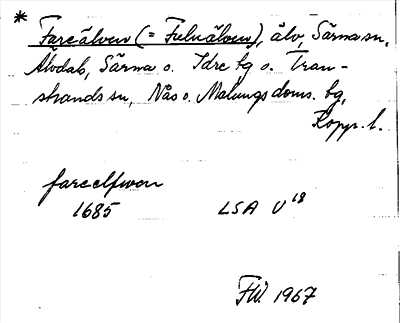 * Fareälven (= Fuluälven), älv, Särna sn,
Älvdals, Särna o. Idre tg o. Tran-
strands sn, Nås o. Malungs doms. tg,
Kopp. l.
fareelfwon
1685 LSA U 18
FW. 1967